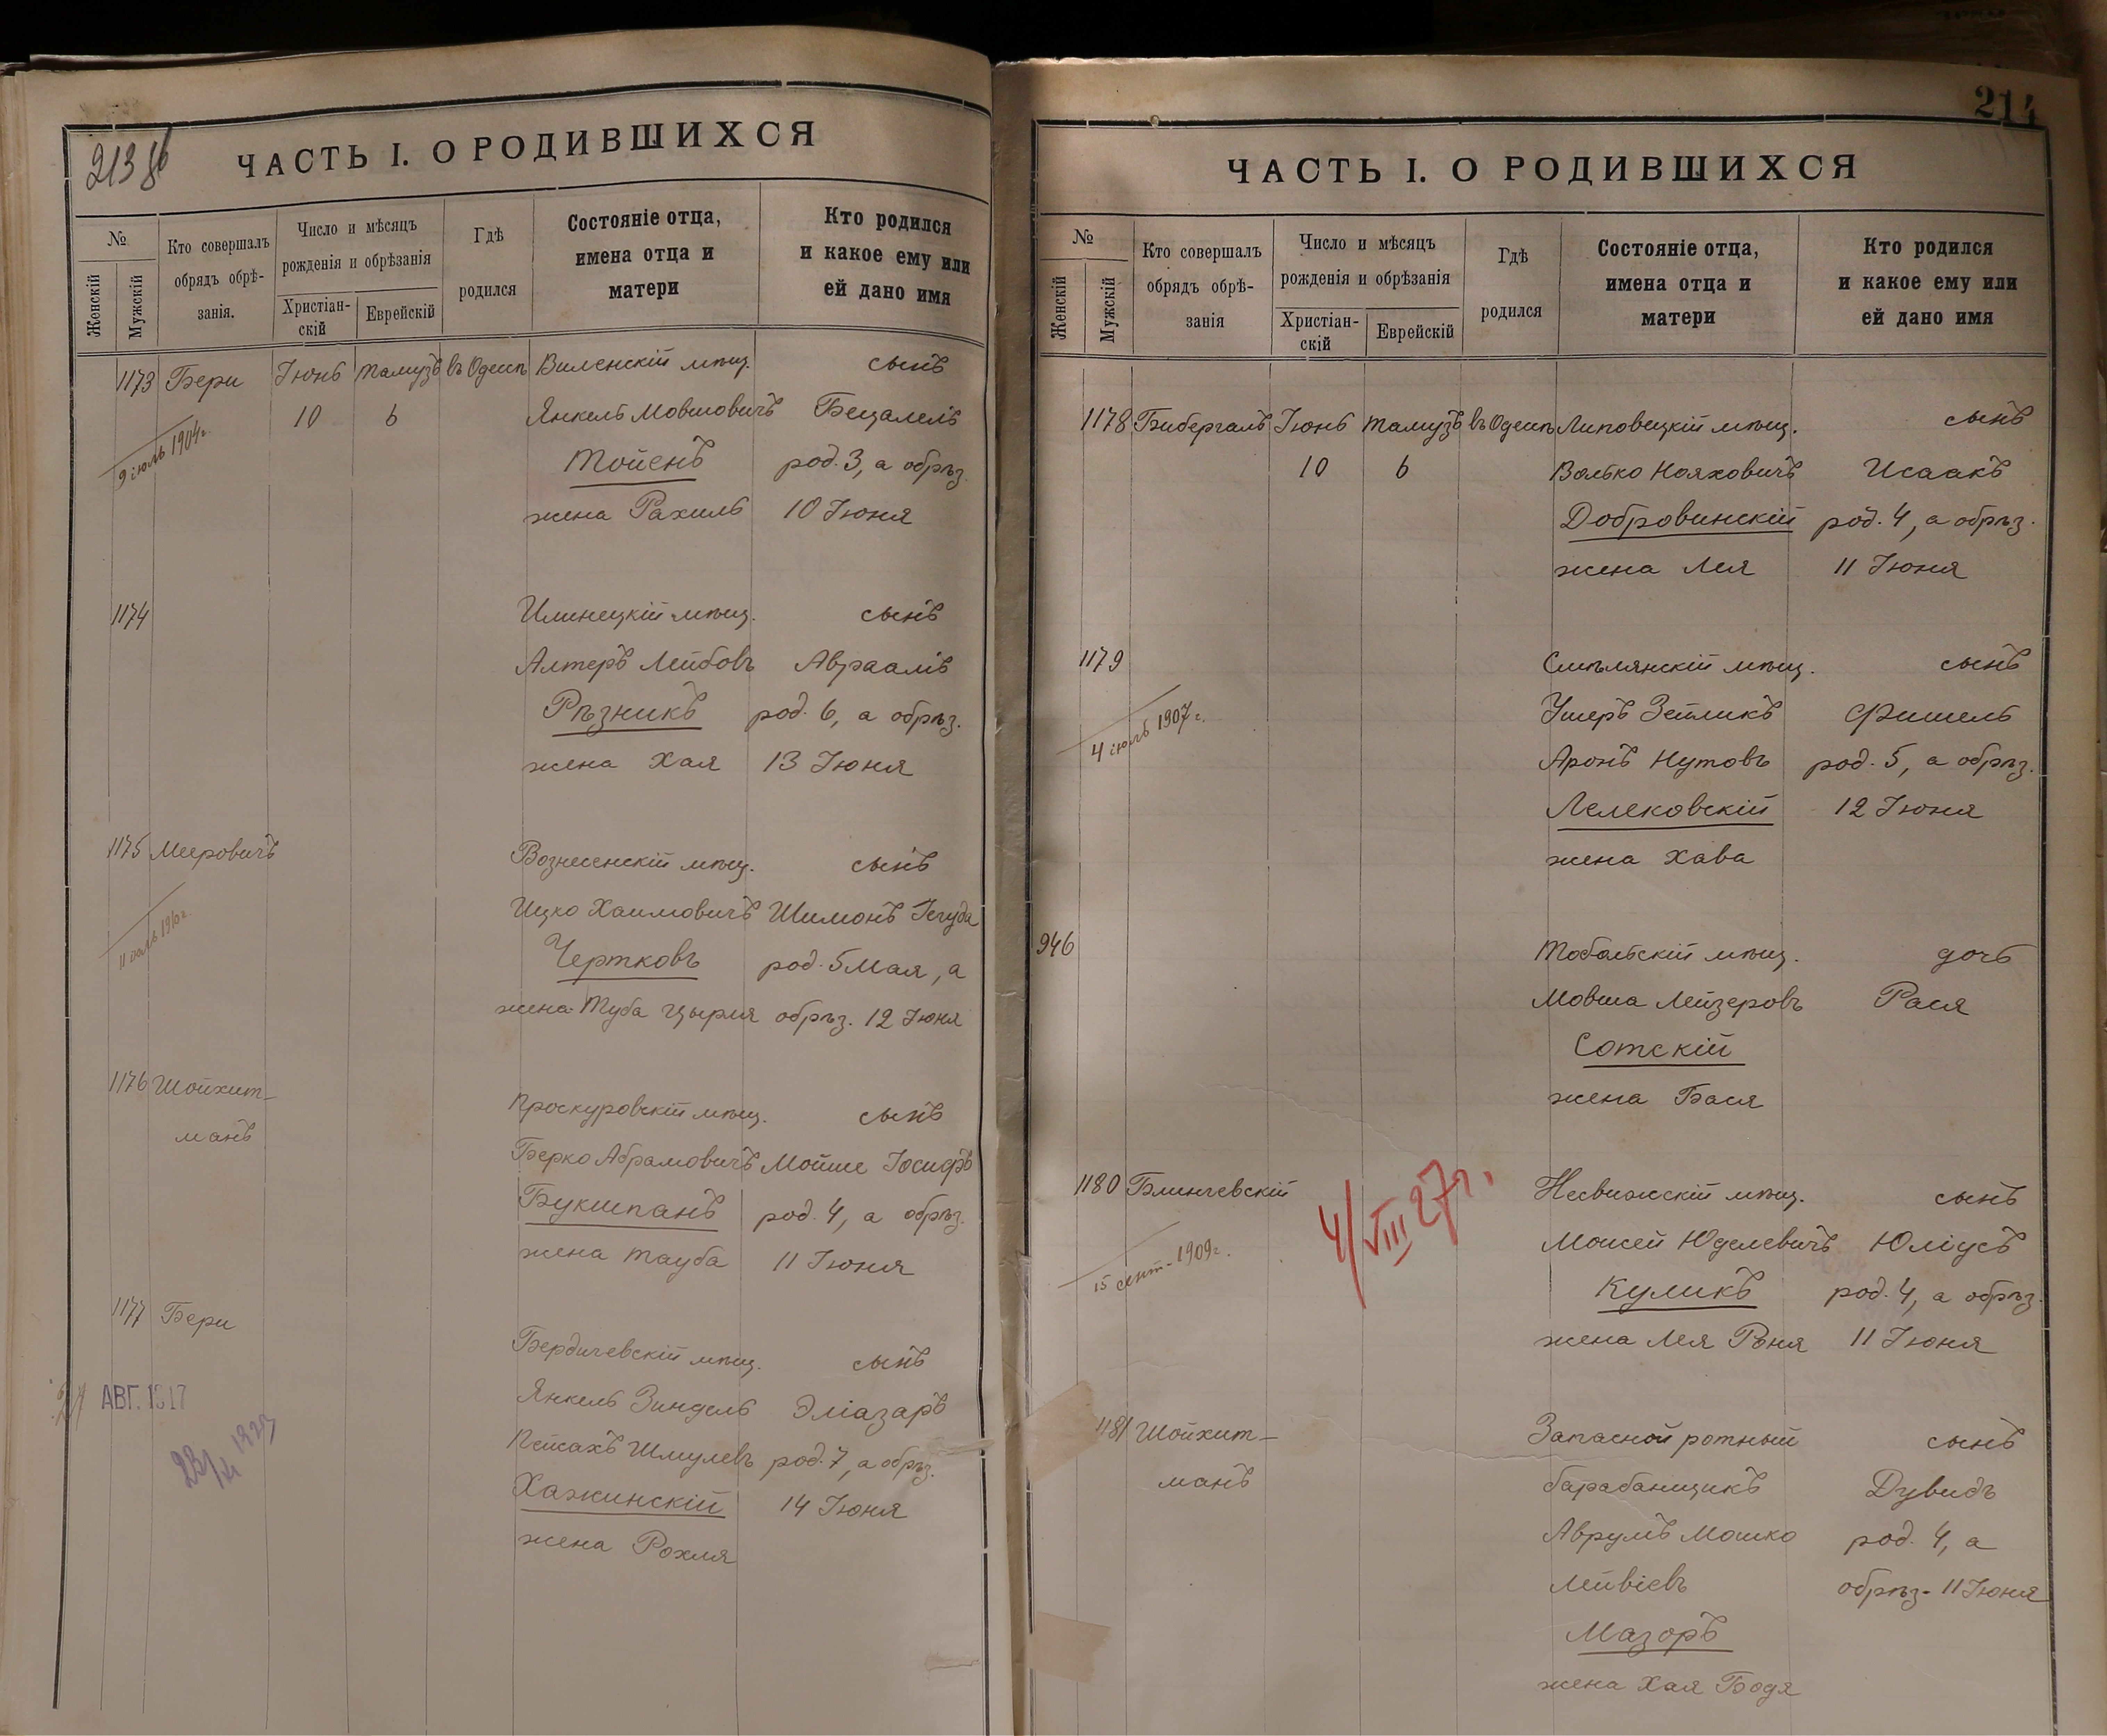 213 об
ЧАСТЬ I. О РОДИВШИХСЯ
№
Женскій
Мужскій
Кто совершалъ
обрядъ обрѣ-
занія.
Число и мѣсяцъ
рожденія и обрѣзанія
Христіан-
скій
Еврейскій
Гдѣ
родился
Состояніе отца,
имена отца и
матери
Кто родился
и какое ему или
ей дано имя
1173 Бери Іюнь Тамузъ въ Одессѣ Виленскій мѣщ. сынъ
10 6 Янкель Мовшовичъ Бецалель
9 іюль 1904 г.
Тойенъ род. 3, а обрѣз.
жена Рахиль 10 Іюня
1174 Илинецкій мѣщ. сынъ
Алтеръ Лейбовъ Авраамъ
Рѣзникъ род. 6, а обрѣз.
жена Хая 13 Іюня
1175 Мееровичъ Вознесенскій мѣщ. сынъ
Ицко Хаимовичъ Шимонъ Іегуда
Чертковъ род. 5 Мая, а
жена Туба Цырля обрѣз. 12 Іюня
1176 Шойхит-
манъ
Проскуровскій мѣщ. сынъ
Берко Абрамовичъ Мойше Іосифъ
Букшпанъ род. 4, а обрѣз.
жена Тауба 11 Іюня
1177 Бери
Бердичевскій мѣщ. сынъ
Янкель Зиндель Эліазаръ
Пейсахъ Шмулевъ род. 7, а обрѣз.
Хажинскій 14 Іюня
жена Рохля
АВГ. 1917
214
ЧАСТЬ I. О РОДИВШИХСЯ
№
Женскій
Мужскій
Кто совершалъ
обрядъ обрѣ-
занія
Число и мѣсяцъ
рожденія и обрѣзанія
Христіан-
скій
Еврейскій
Гдѣ
родился
Состояніе отца,
имена отца и
матери
Кто родился
и какое ему или
ей дано имя
1178 Бибергалъ Іюнь Тамузъ въ Одессѣ Липовецкій мѣщ. сынъ
10 6 Волько Нояховичъ Исаакъ
Добровинскій род. 4, а обрѣз.
жена Лея 11 Іюня
1179 Смѣлянскій мѣщ. сынъ
4 іюль 1907 г.
Ушеръ Зейликъ Фишель
Аронъ Нутовъ род. 5, а обрѣз.
Лелековскій 12 Іюня
жена Хава
946 Тобольскій мѣщ. дочь
Мовша Лейзеровъ Рася
Сотскій
жена Бася
1180 Блинчевскій 4/VIII 27 г. Несвижскій мѣщ. сынъ
15 сент. 1909 г.
Моисей Юделевичъ Юліусъ
Куликъ род. 4, а обрѣз.
жена Лея Роня 11 Іюня
1181 Шойхит-
манъ
Запасной ротный сынъ
барабанщикъ Дувидъ
Аврумъ Мошко род. 4, а
Лейвіевъ обрѣз. 11 Іюня
Мазоръ
жена Хая Бодя